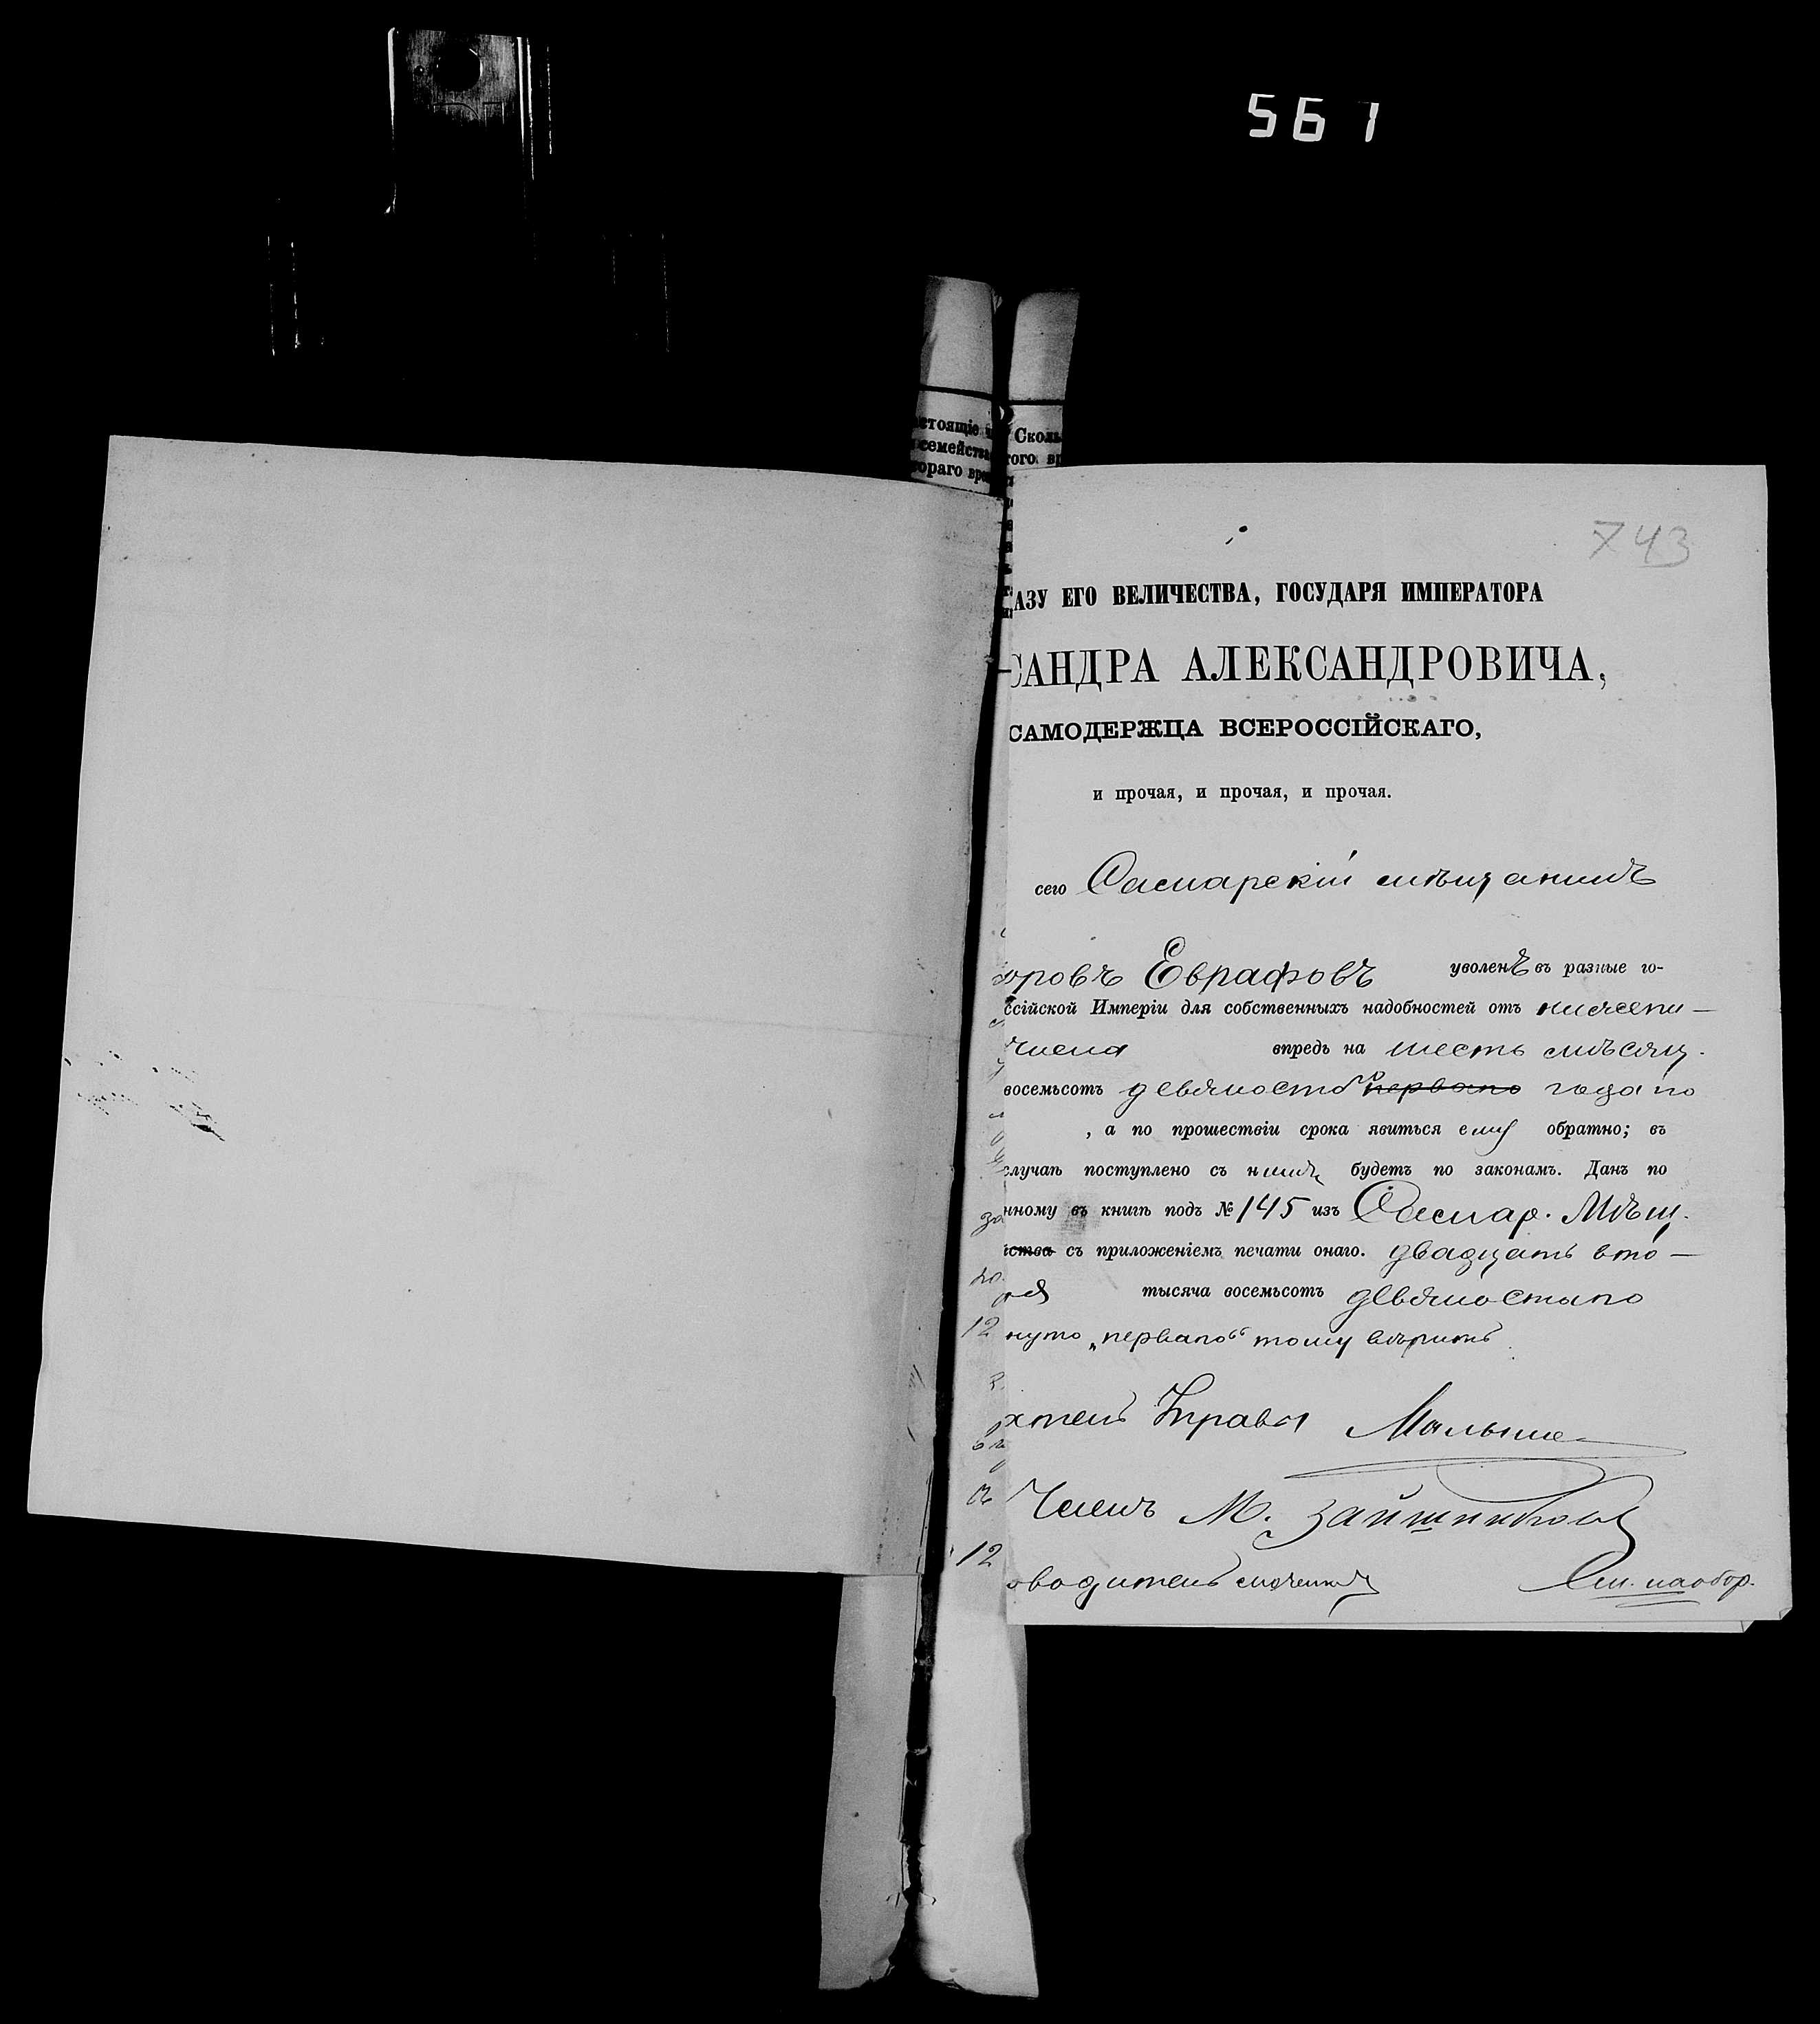 561
стоящіе
семейства
тораго вре
Сколь
того вр
743
АЗУ ЕГО ВЕЛИЧЕСТВА, ГОСУДАРЯ ИМПЕРАТОРА
САНДРА АЛЕКСАНДРОВИЧА,
САМОДЕРЖЦА ВСЕРОССІЙСКАГО,
и прочая, и прочая, и прочая.
сего Самарскій мѣщанинъ
оровъ Еврафовъ уволенъ въ разные го-
ссійской Имперіи для собственныхъ надобностей отъ нижепи-
числа впредь на шесть мѣсяц.
восемьсотъ девяносто первого года по
, а по прошествіи срока явиться ему обратно; въ
случаѣ поступлено съ нимъ будетъ по законамъ. Данъ по
нному въ книгѣ подъ № 145 изъ Самар. Мѣщ.
ства съ приложеніемъ печати онаго. двадцать вто-
ря тысяча восемьсотъ девяностаго
нуто „перваго“ тому вѣрить
Управы
Членъ М.
12
12
оводитель